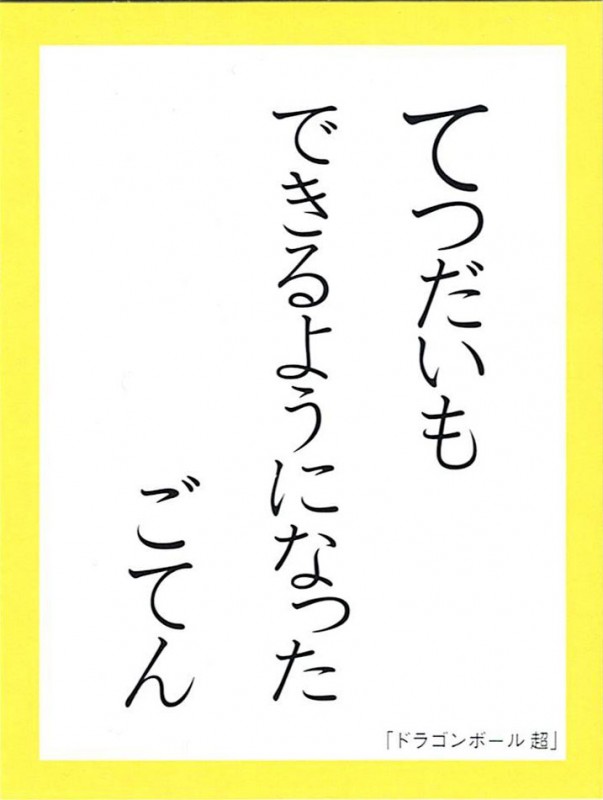 てつだいも
できるようになった
ごてん
「ドラゴンボール 超」